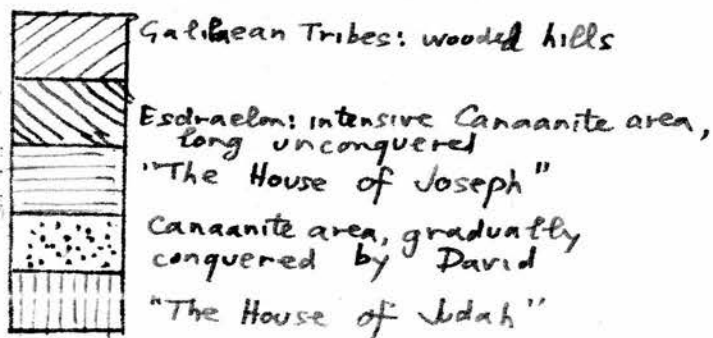 Galilaean Tribes: wooded hills
Esdraelon: intensive Canaanite area,
long unconquered
"The House of Joseph"
Canaanite area, gradually
conquered by David
"The House of Judah"